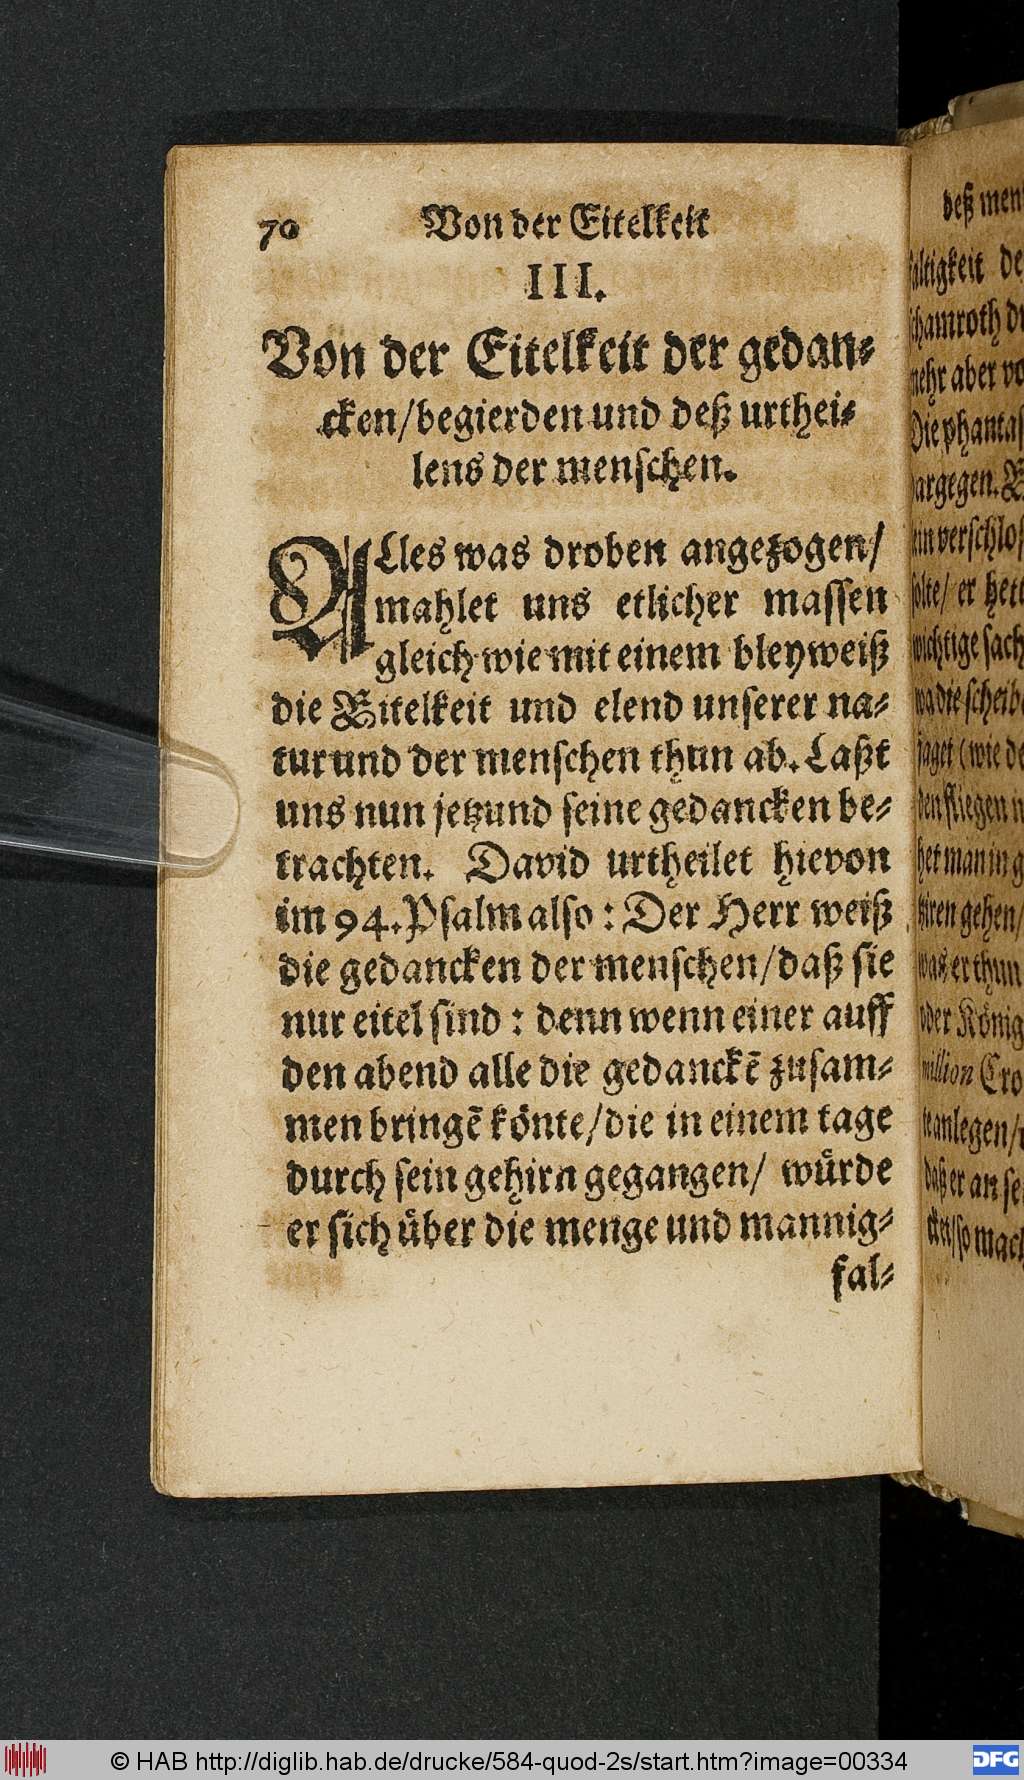 70 Von der Eitelkeit
III.
Von der Eitelkeit der gedan-
cken/begierden und deß urthei-
lens der menschen.
ALles was droben angezogen/
mahlet uns etlicher massen
gleich wie mit einem bleyweiß
die Eitelkeit und elend unserer na-
tur und der menschen thun ab. Laßt
uns nun jetzund seine gedancken be-
trachten. David urtheilet hievon
im 94. Psalm also: Der Herr weiß
die gedancken der menschen/daß sie
nur eitel sind: denn wenn einer auff
den abend alle die gedanckẽ zusam-
men bringẽ könte/die in einem tage
durch sein gehirn gegangen/ würde
er sich über die menge und mannig-
fal-
deß men
faltigkeit
schamroth
mehr aber
Die
dargegen.
ein
solte/ er
wichtige
wa die
jaget (wie
den fliegen
het man in
gehen/
was er thun
oder König
million Cro
anlegen/
daß er an
cket/so
© HAB http://diglib.hab.de/drucke/584-quod-2s/start.htm?image=00334
DFG